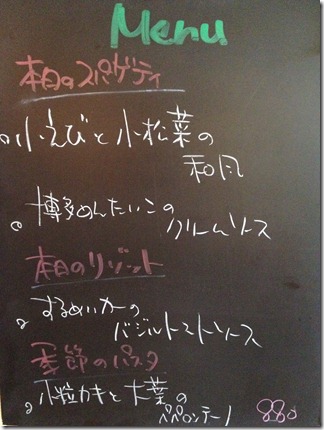 Menu
本日のスパゲティ
小えびと小松菜の
和風
博多めんたいこの
クリームソース
本日のリゾット
するめいかーの
バジルトマトソース
季節のパスタ
小粒カキと大葉の
ペペロンチーノ
880